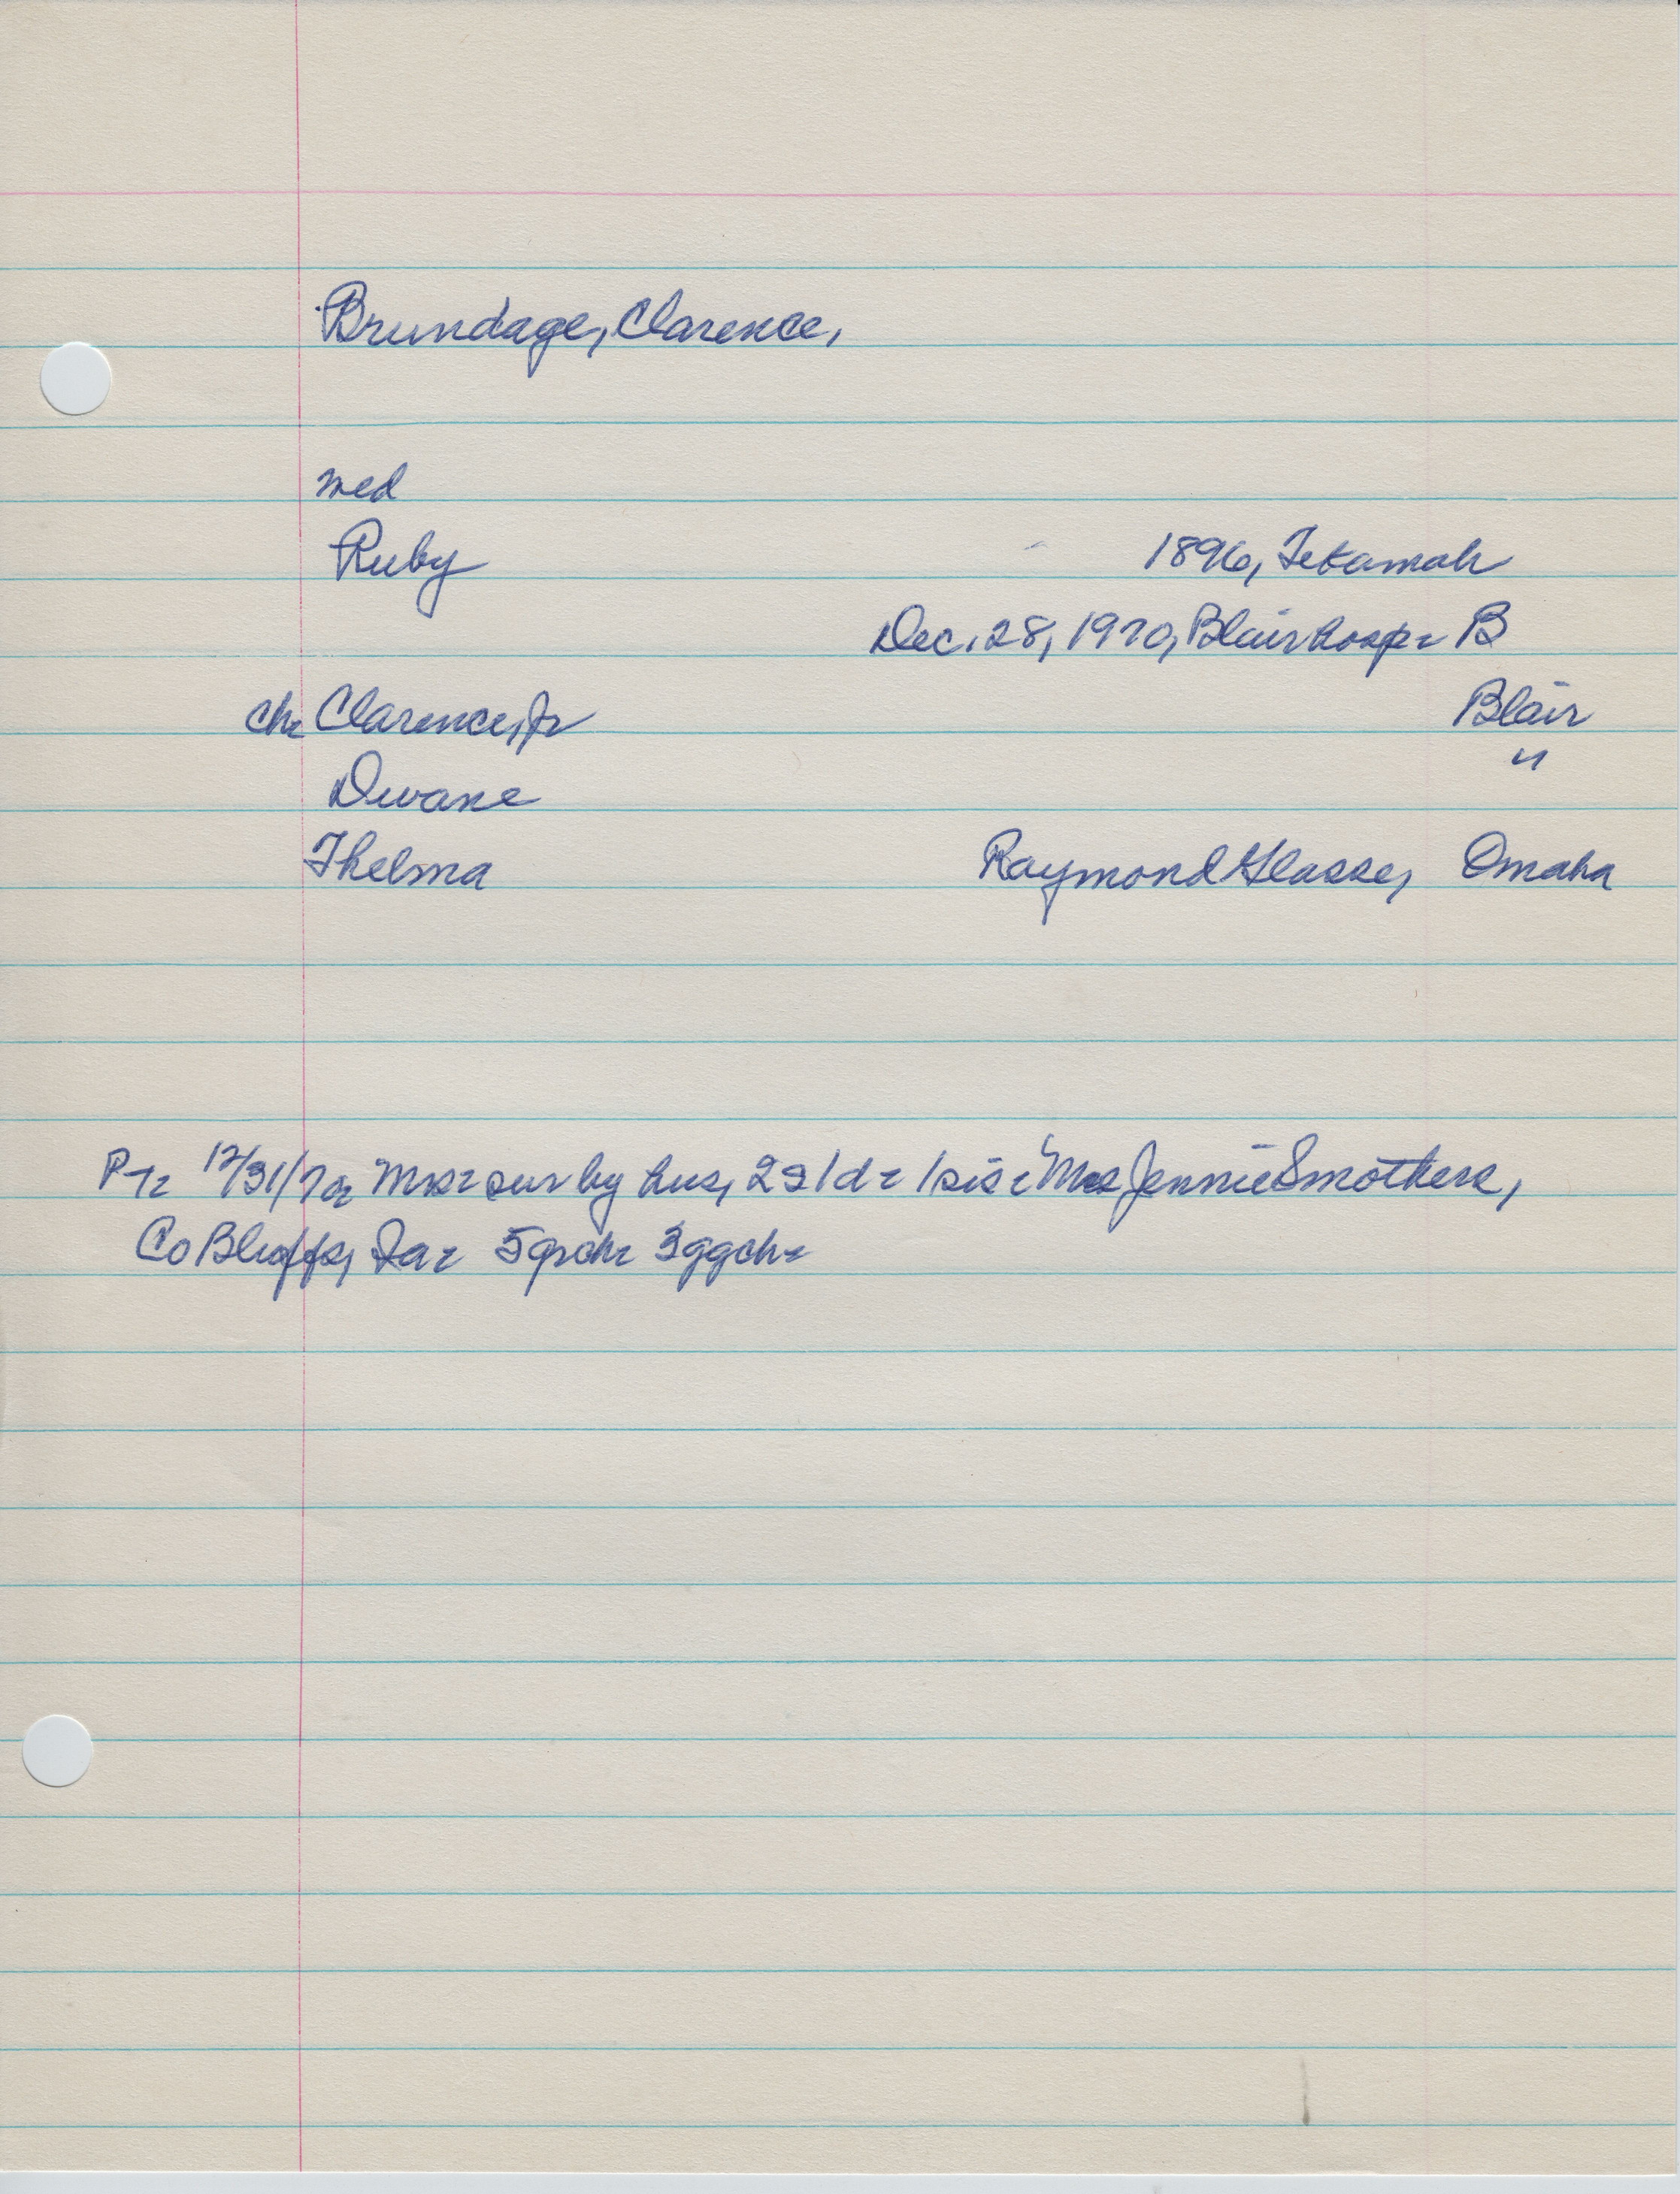 Brundage, Clarence,
med
Ruby 1896, Tekamah
Dec. 28, 1970, Blair hosp- B
ch- Clarence, Jr Blair
Dwane "
Thelma Raymond Glasse, Omaha
PT- 12/31/70- Mrs- sur by hus, 2s 1d- 1sis- Mrs Jennie Smothers,
Co Bluffs, Ia- 5grch- 3ggch-